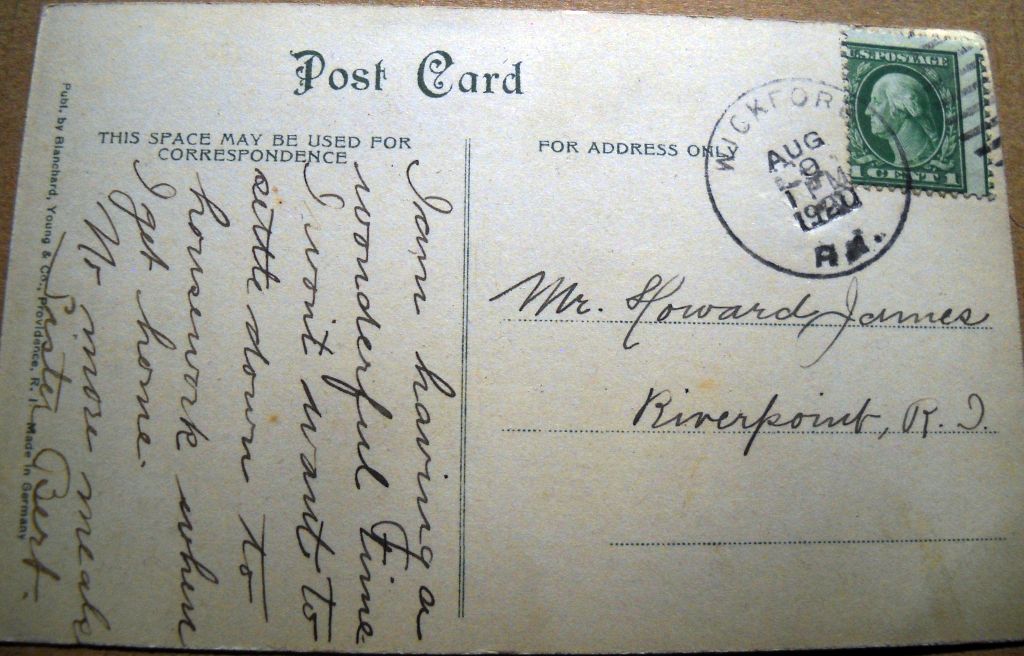 Post Card
THIS SPACE MAY BE USED FOR
CORRESPONDENCE
FOR ADDRESS ONL
WICKFOR
AUG
9
1 PM
1920
R.I.
U.S. POSTAGE
1 CENT 1
Mr. Howard James
Riverpoint, R. I.
I am having a
wonderful time.
I wont want to
settle down to
housework when
I get home.
No more meals
Sister Bert.
Publ. by Blanchard, Young & Co., Providence, R. I. Made in Germany